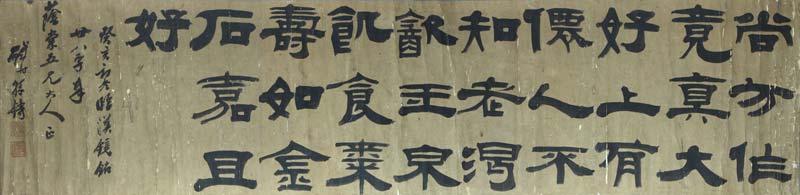 尚方作
竟真大
好上有
僊人不
知老渴
飲玉泉
飢食棗
壽如金
石嘉且
好
癸亥初冬臨漢鏡銘
廿八字奉
蔭棠五兄大人正